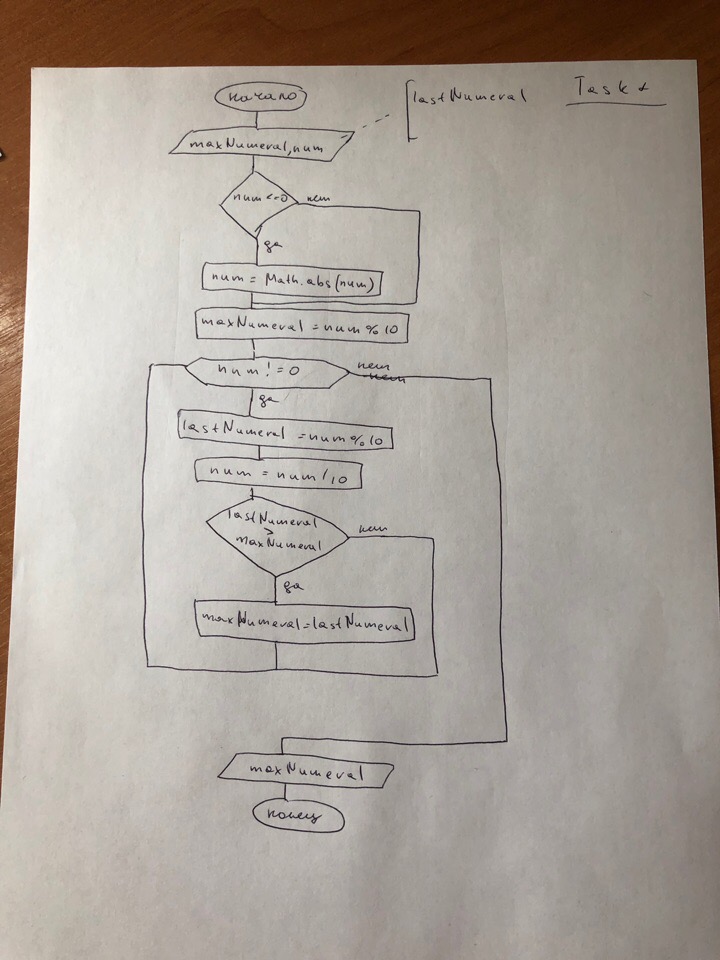 Task
lastNumeral
начало
maxNumeral, num
num <=0
нет
да
num = Math.abs(num)
maxNumeral = num % 10
num != 0
нет
нет
да
lastNumeral = num % 10
num = num / 10
lastNumeral
>
maxNumeral
нет
да
maxNumeral = lastNumeral
maxNumeral
конец